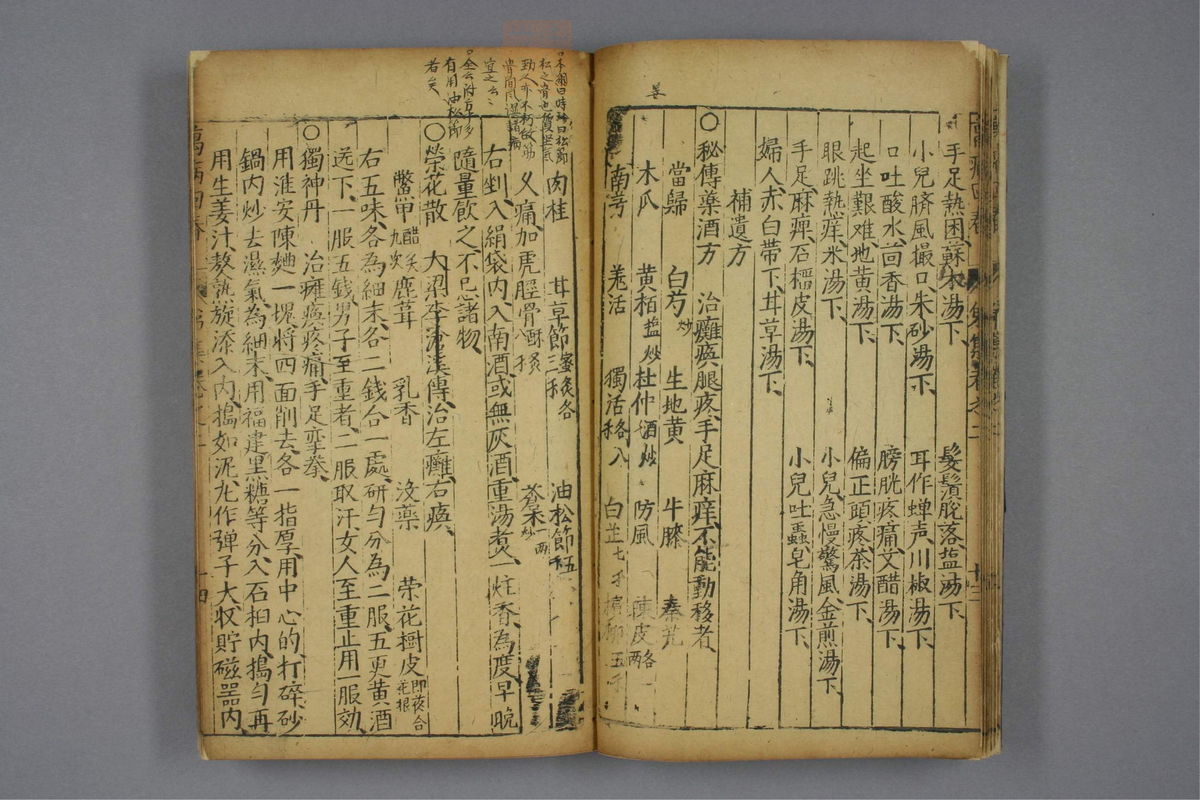 手足熱困、蘇木湯下、　髮鬚脫落、塩湯下、
小兒臍風撮口、朱砂湯下、　耳作蟬声、川椒湯下、
口吐酸水、茴香湯下、　膀胱疼痛、文醋湯下、
起坐艱难、地黄湯下、　偏正頭疼、茶湯下、
眼跳熱痒、米湯下、　小兒急慢驚風、金煎湯下、
手足麻痺、石榴皮湯下、　小兒吐蟲、皂角湯下、
婦人赤白帶下、甘草湯下、
補遺方
○秘傳藥酒方　治癱瘓腿疼、手足麻痒、不能動移者、
當歸　白芍炒　生地黄　牛膝　秦艽
木瓜　黄栢塩炒　杜仲酒炒　防風　陳皮各一两
南芎　羌活　獨活各八　白芷七　檳榔五
肉桂　甘草節蜜炙各三　油松節五
乂痛、加虎脛骨酥炙八　蒼朮炒一两
右剉、入絹袋内、入南酒或無灰酒、重湯煮一炷香為度、早晚
隨量飲之、不忌諸物、
○榮花散　大梁李滄溪傳、治左癱右瘓、
鱉甲醋炙九次　鹿茸　乳香　沒藥　榮花樹皮即夜合花根
右五味、各為細末、各二錢合一處、研勻分為二服、五更黄酒
送下、一服五錢、男子至重者、二服取汗、女人至重止用一服效、
○獨神丹　治癱瘓疼痛、手足攣拳、
用淮安陳麯一塊、將四面削去各一指厚、用中心的打碎、砂
鍋内炒去濕氣、為細末、用福建黒糖等分、入石臼内、搗勻、再
用生姜汁熬熟、旋添入内、搗如泥、丸作弹子大、収貯磁器内、
萬病回春
十四